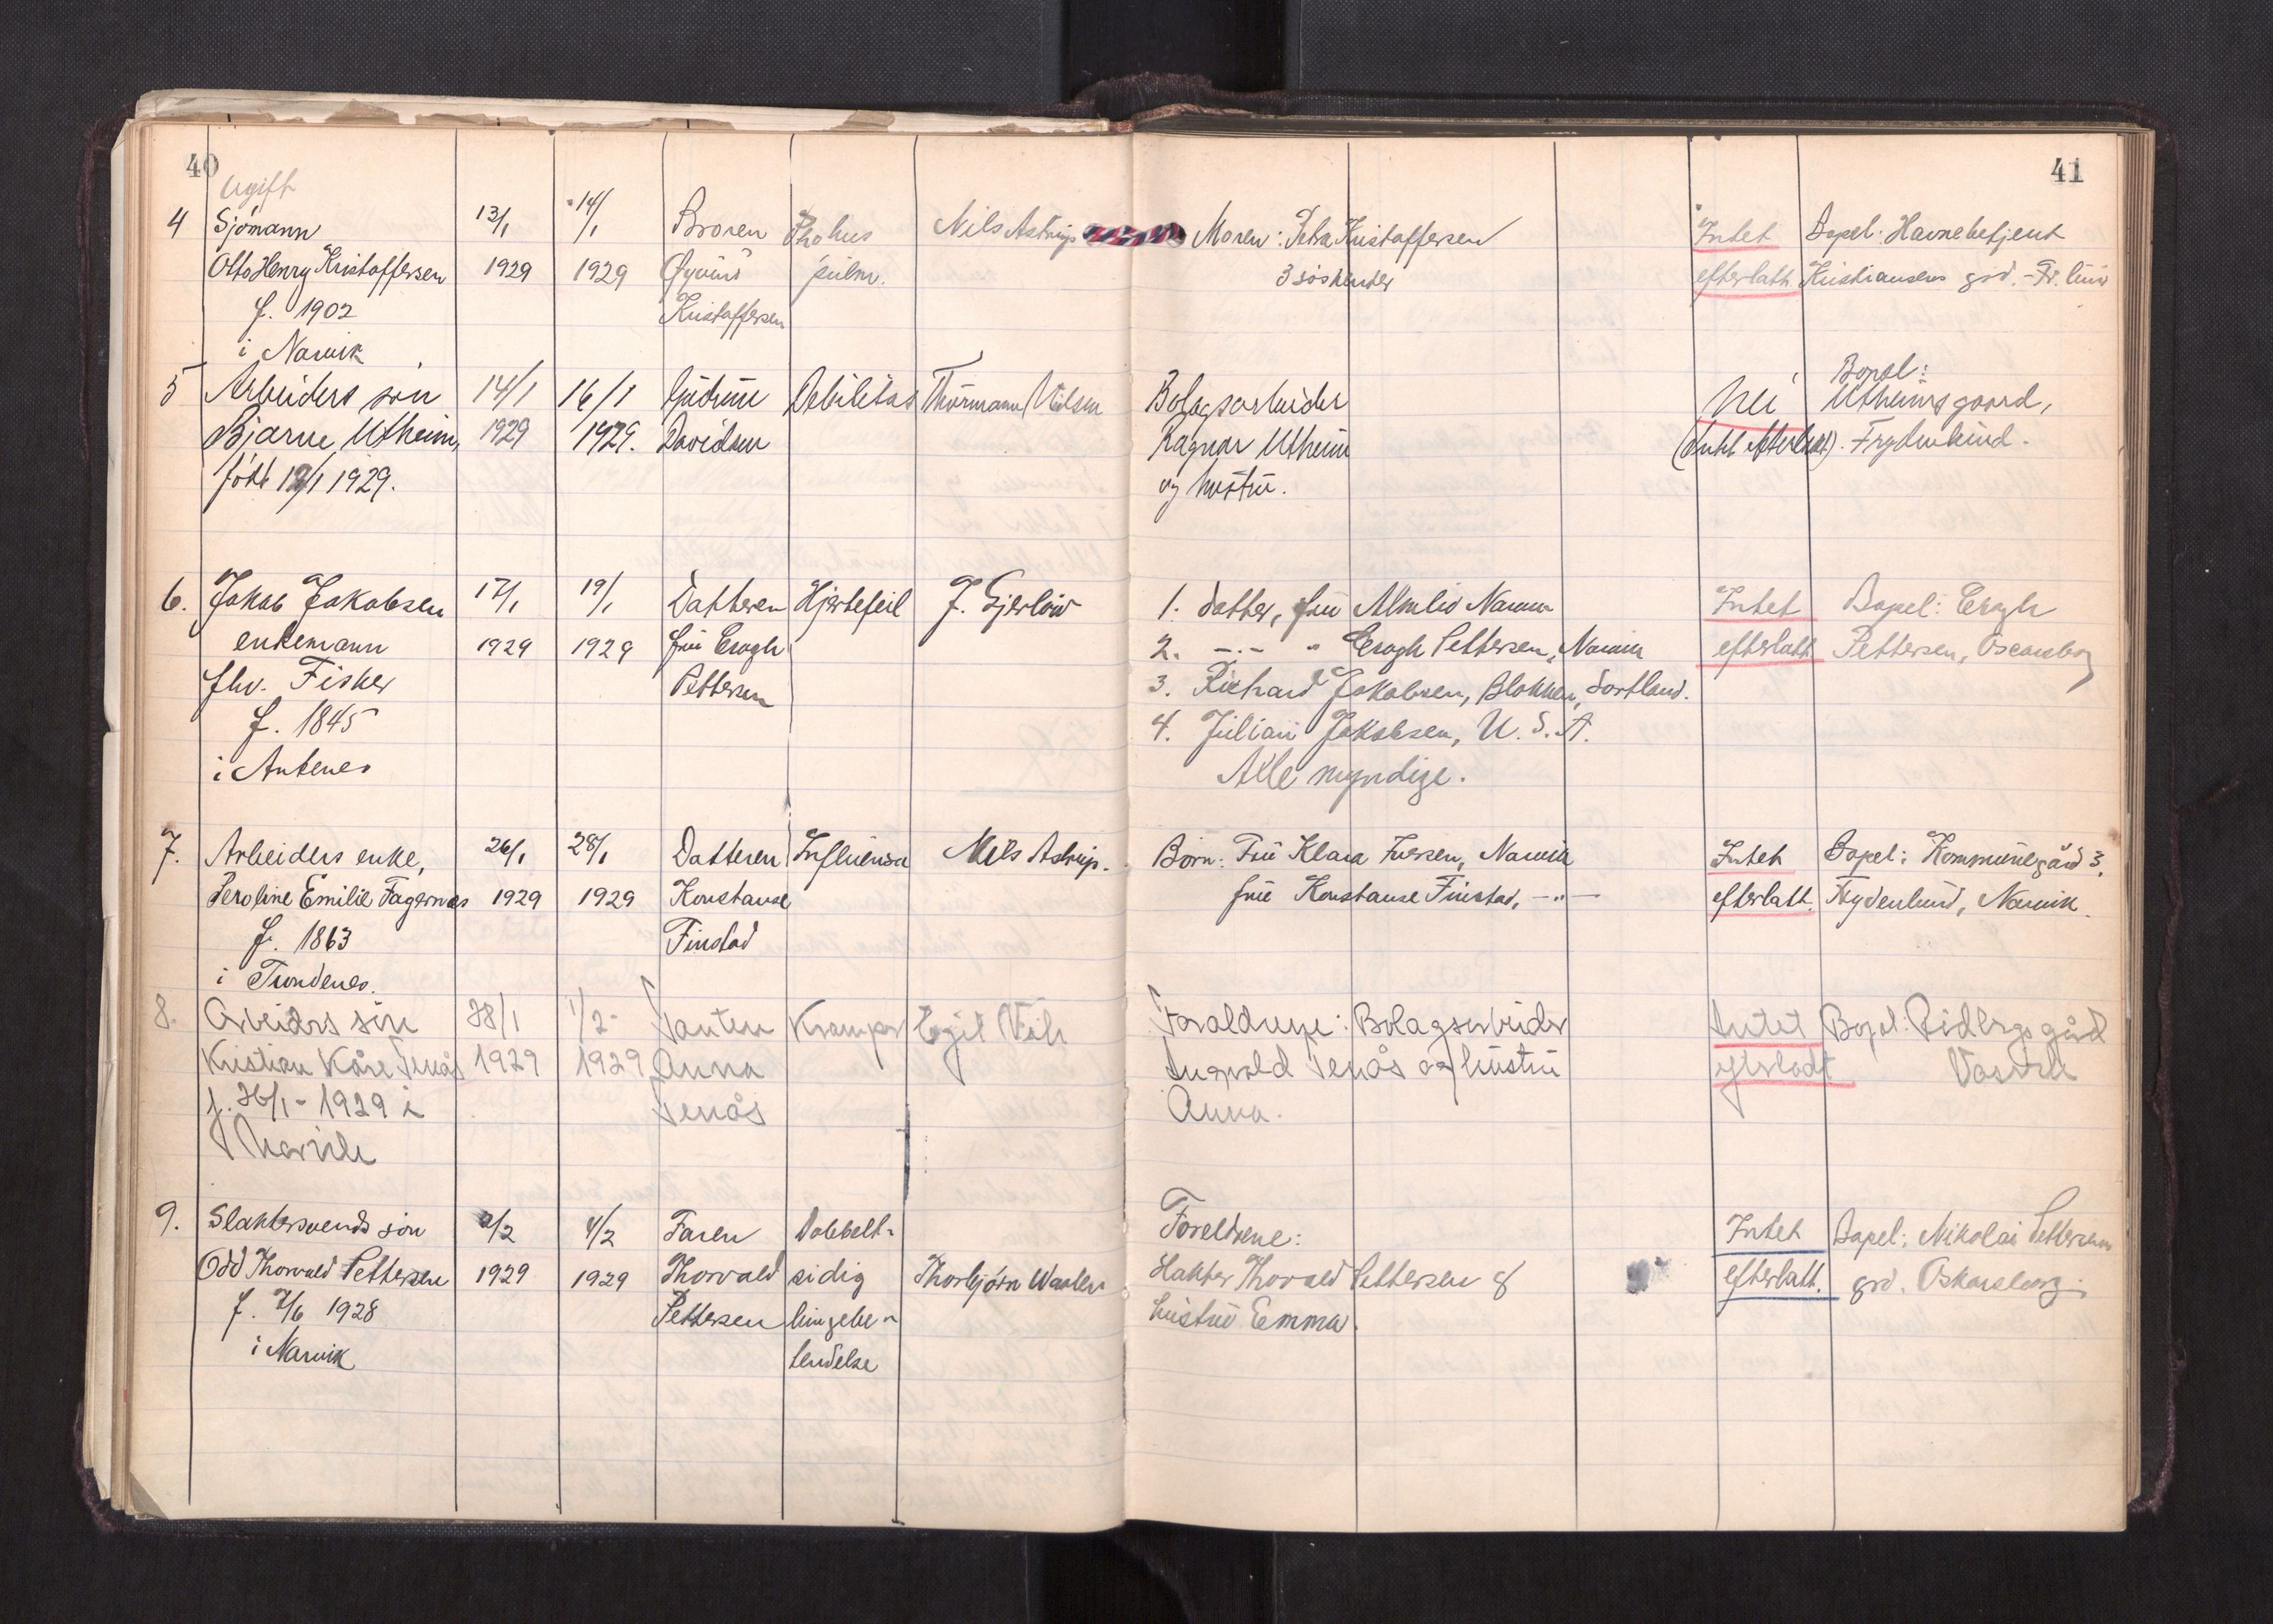 40
41
Ugift
4 Sjömann 13/1 14/1 Broren Phthis Nils Astrup Moren: Petra Kristoffersen Intet Bopel: Havnebetjent
Otto Henry Kristoffersen 1929 1929 Øyvind pulm. 3 söskender efterlatt. Kristiansens grd. - Fr. lund
f. 1902 Kristoffersen
i Narvik
5 Arbeiders sön 14/1 16/1 Gudrun Debilitas Thormann Nilsen Bolagsarbeider Nei Bopel: Utheimsgaard,
Bjarne Utheim, 1929 1929. Davidsen Ragnar Utheim (Intet efterlatt). Frydenlund.
född 12/1 1929. og hustru.
6. Jakob Jakobsen 17/1 19/1 Datteren Hjertefeil J. Gjerlöw 1. datter, fru Almlid Narvik Intet Bopel: Eragh
enkemann 1929 1929 fru Eragh 2. -.- " Eragh Pettersen, Narvik efterlatt Pettersen, Oscarsborg
fhv. Fisker Pettersen 3. Richard Jakobsen, Blokken, Sortland.
f. 1845 4. Julian Jakobsen, U.S.A.
i Ankenes Alle myndige.
7. Arbeiders enke, 26/1 28/1 Datteren Influensa Nils Astrup. Börn: Fru Klara Iversen, Narvik Intet Bopel: Kommunegård 3,
Peroline Emilie Fagernes 1929 1929 Konstanse fru Konstanse Finstad, -"- efterlatt. Frydenlund, Narvik.
f. 1863 Finstad
i Trondenes.
8. Arbeiders sön 28/1 1/2 Tanten Kramper Egil Foraldrene: Bolagsarbeider Intet Bopel: gård
Kristian Kåre Tenås 1929 1929 Anna Ingvald Tenås og hustru efterladt Vassvik
f. 26/1 - 1929 i Tenås Anna.
Narvik
9. Slaktersvends sön 2/2 4/2 Faren Dobbelt- Foreldrene: Intet Bopel: Nikolai Pettersens
Odd Thorvald Pettersen 1929 1929 Thorvald sidig Thorbjörn Slakter Thorvald Pettersen & efterlatt. grd. Oskarsborg.
f. 7/6 1928 Pettersen lungebe- hustru Emma.
i Narvik tendelse